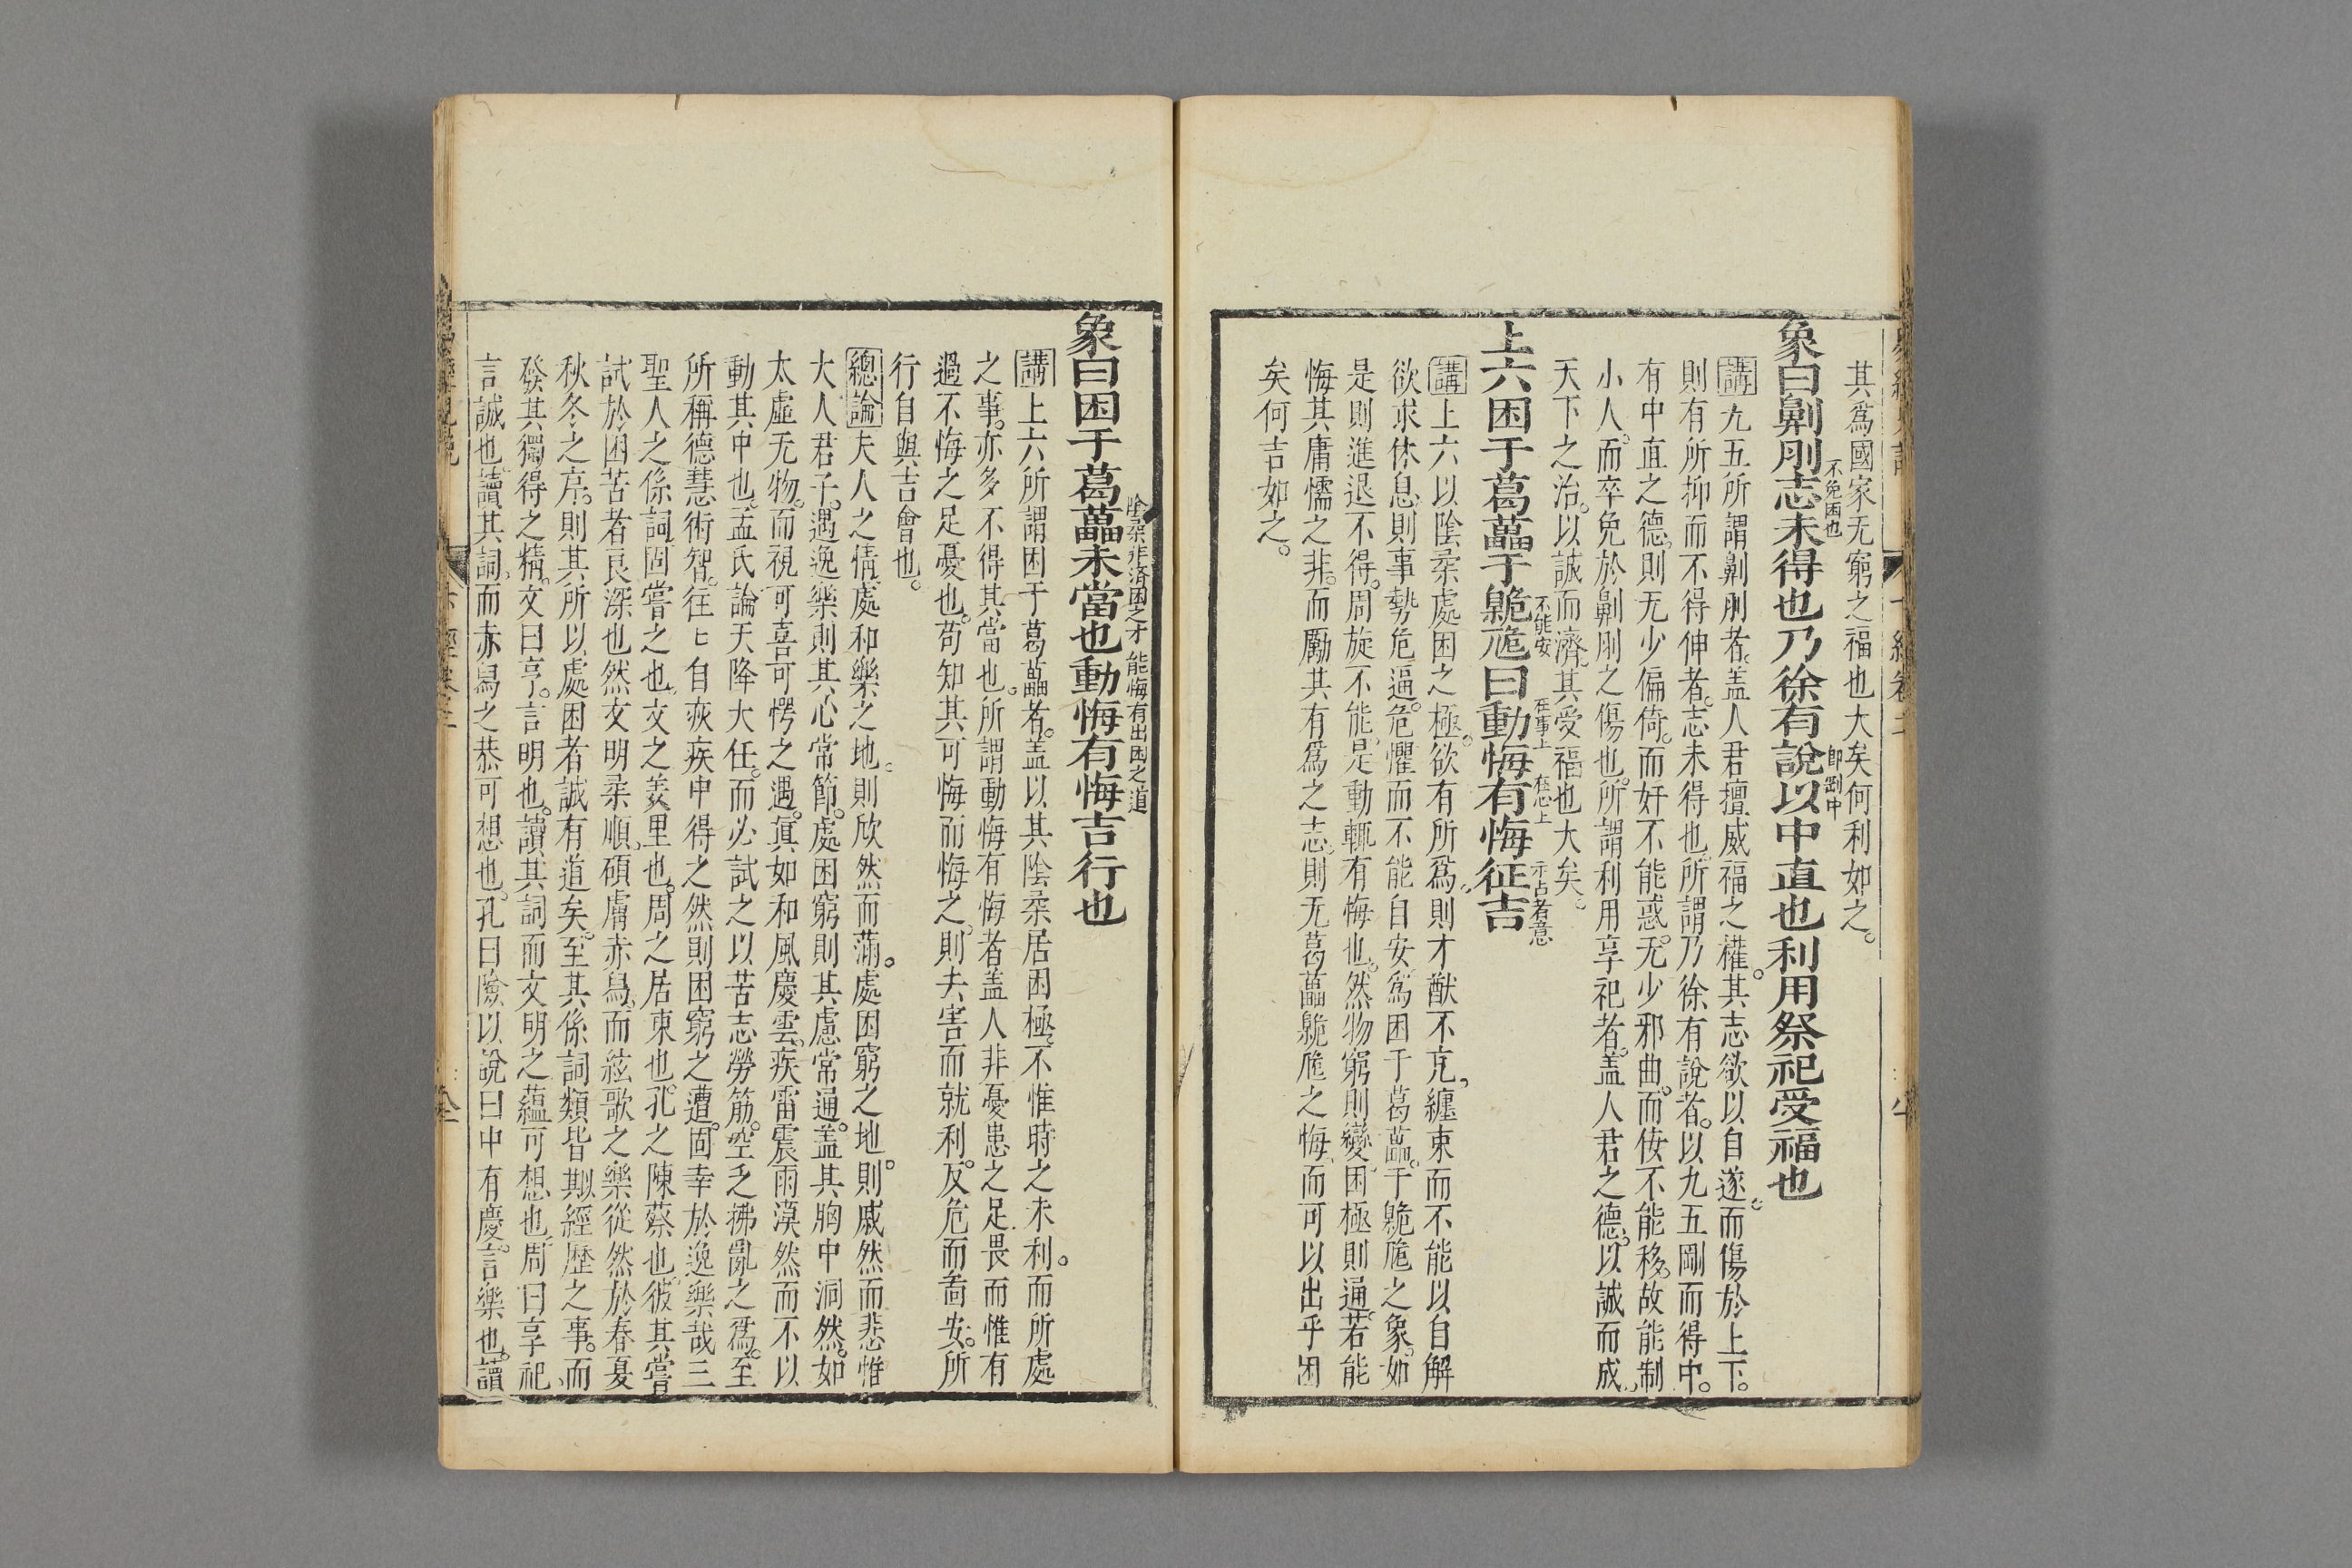 其爲國家无窮之福也大矣何利如之。
象曰劓刖志未得也乃徐有說以中直也利用祭祀受福也
不免困也
即剛中
講九五所謂劓刖者。盖人君擅威福之權。其志欲以自遂。而傷於上下。
則有所抑而不得伸者。志未得也。所謂乃徐有說者。以九五剛而得中。
有中直之德。則无少偏倚。而奸不能惑。无少邪曲。而佞不能移。故能制
小人。而卒免於劓刖之傷也。所謂利用享祀者。盖人君之德。以誠而成。
天下之治。以誠而濟。其受福也大矣。
上六困于葛藟于臲卼曰動悔有悔征吉
不能安
在事上
在心上
示占者意
講上六以陰柔處困之極。欲有所爲。則才猷不克。纏束而不能以自解
欲求休息。則事勢危逼。危懼而不能自安。爲困于葛藟。于臲卼之象。如
是則進退不得。周旋不能。是動輒有悔也。然物窮則變。困極則通。若能
悔其庸懦之非。而勵其有爲之志。則无葛藟臲卼之悔。而可以出乎困
矣何吉如之。
象曰困于葛藟未當也動悔有悔吉行也
陰柔非濟困之才
能悔有出困之道
講上六所謂困于葛藟者。盖以其陰柔居困極。不惟時之未利。而所處
之事。亦多不得其當也。所謂動悔有悔者盖人非憂患之足畏而惟有
過不悔之足憂也。苟知其可悔而悔之。則去害而就利。反危而啇安。所
行自與吉會也。
總論夫人之情處和樂之地。則欣然而滿。處困窮之地。則戚然而悲惟
大人君子。遇逸樂則其心常節。處困窮則其慮常通。盖其胸中洞然。如
太虛无物。而視可喜可愕之遇。眞如和風慶雲。疾雷震雨漠然而不以
動其中也。孟氏論天降大任。而必試之以苦志勞筋。空乏拂亂之爲。至
所稱德慧術智。徃匕自疢疾中得之然則困窮之遭。固幸於逸樂哉三
聖人之係詞固嘗之也。文之羑里也。周之居東也。孔之陳蔡也。彼其嘗
試於困苦者良深也然文明柔順。碩膚赤舄。而絃歌之樂從然於春夏
秋冬之序。則其所以處困者誠有道矣。至其係詞類皆㩀經歷之事。而
發其獨得之精。文曰亨。言明也。讀其詞而文明之蘊可想也。周曰享祀
言誠也。讀其詞。而赤舄之恭可想也。孔曰險以說曰中有慶。言樂也。讀